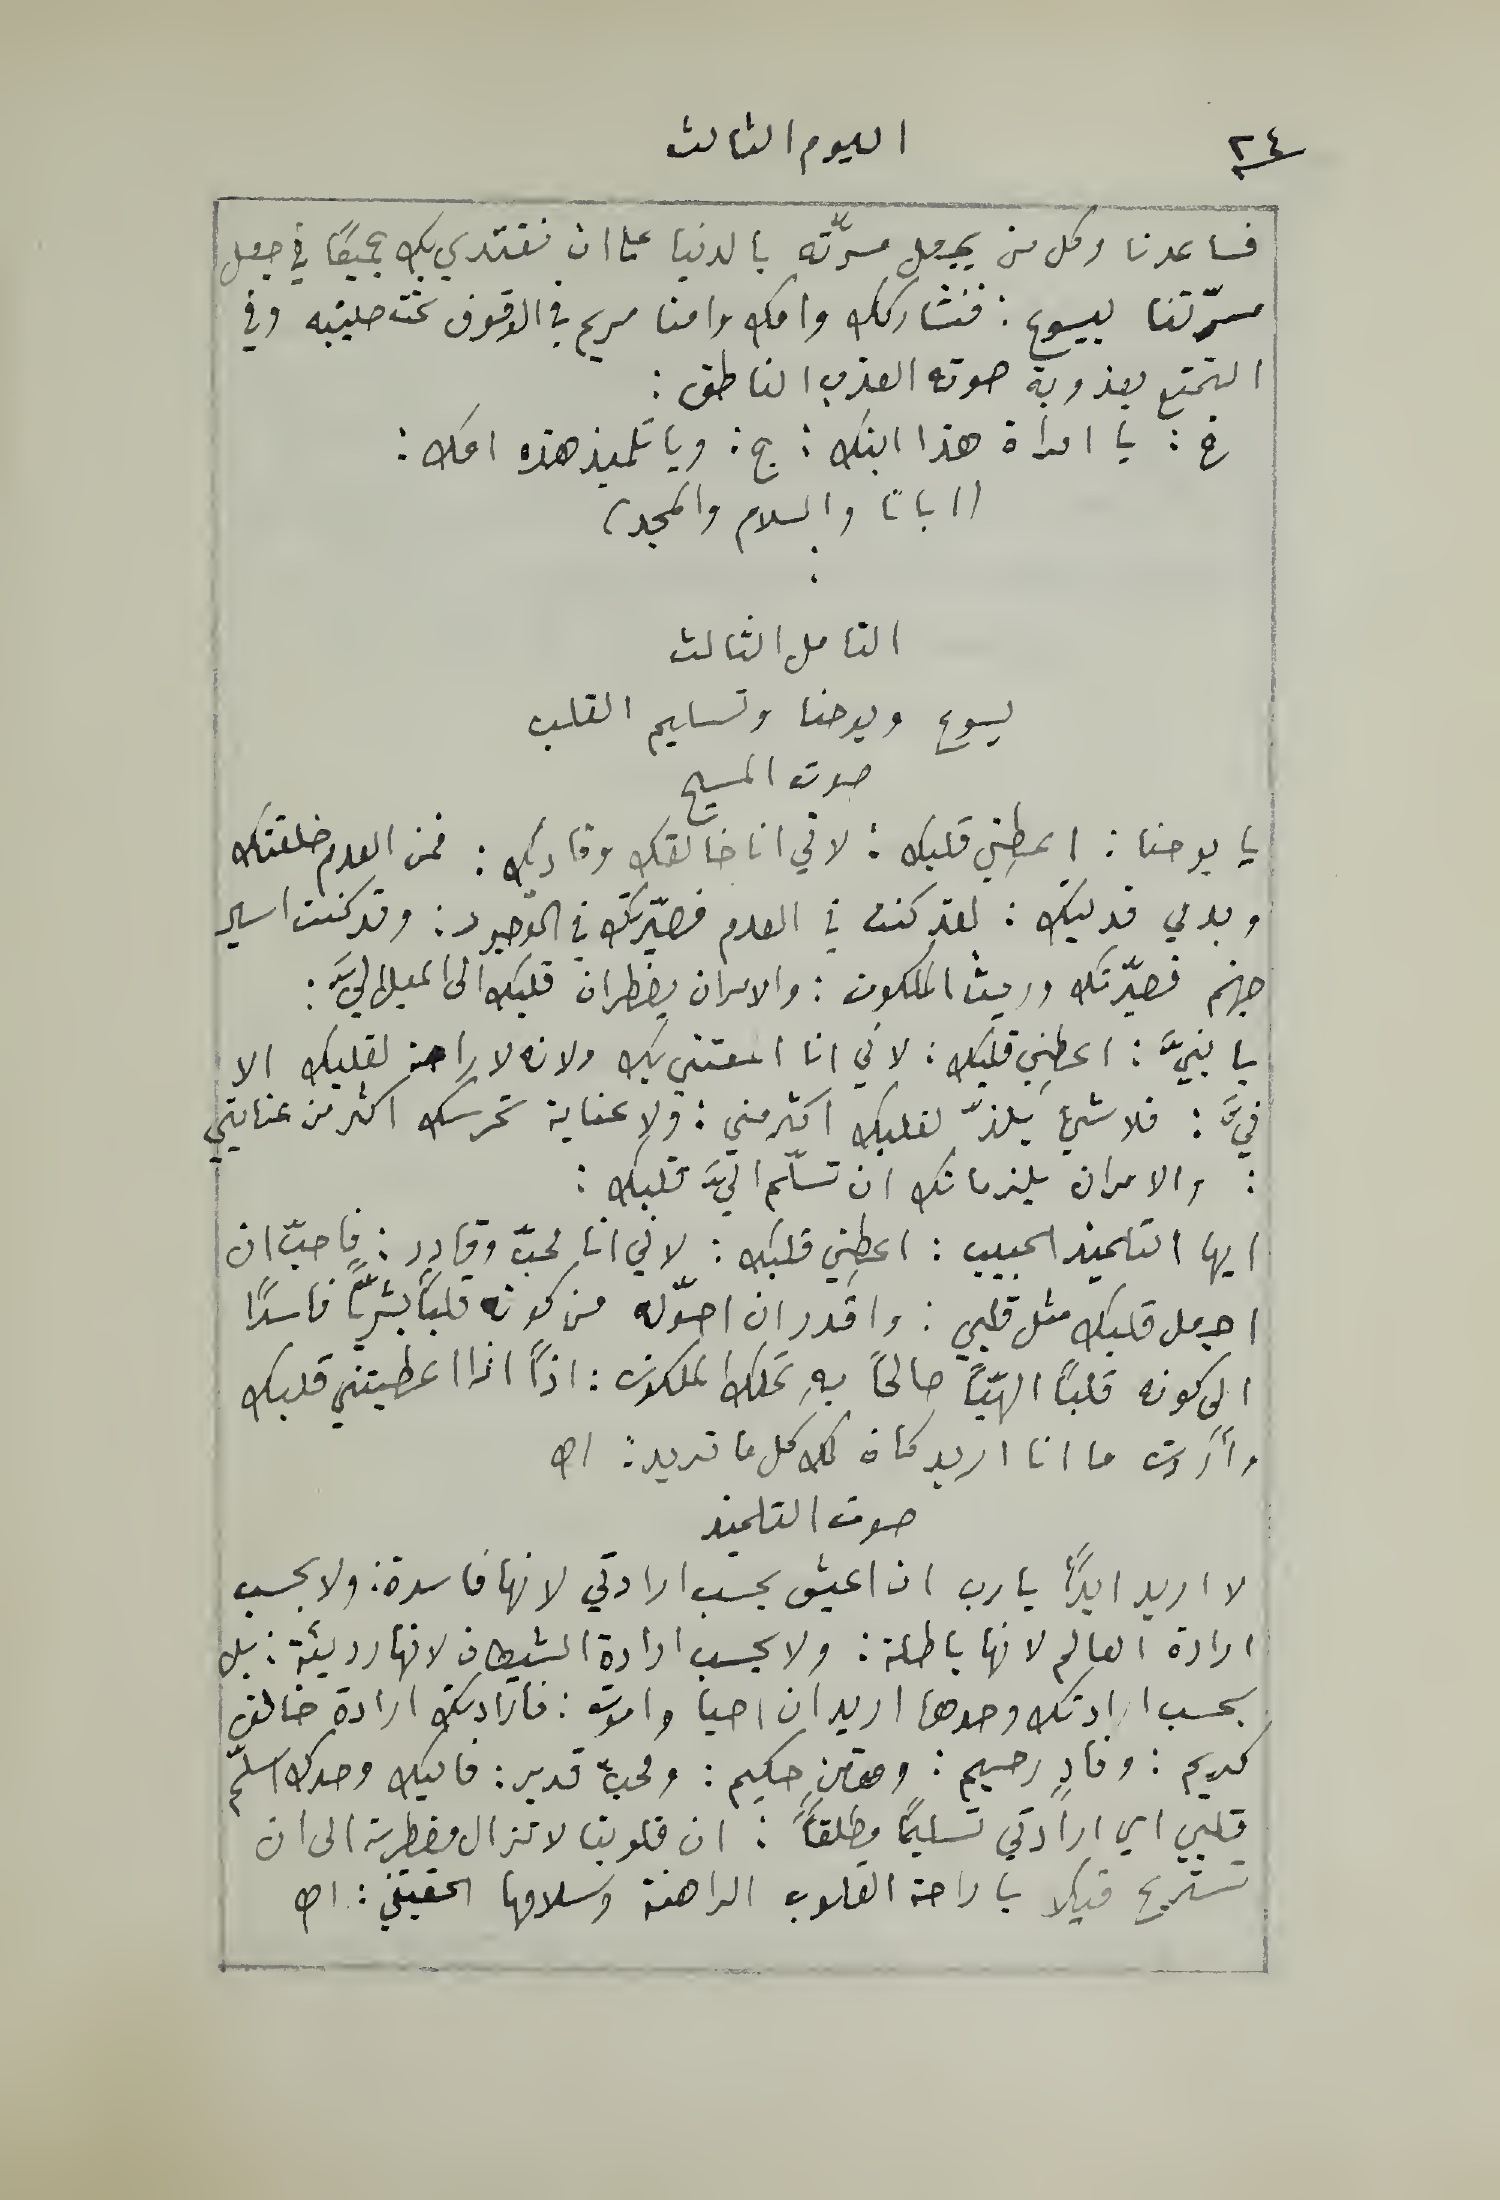 ٢٤
اليوم الثالث
فساعدنا وكل من يجعل مسرّته بالدنيا على ان نقتدي بك جميعًا في جعل
مسرّتنا بيسوع : فنشاركك وامك وامنا مريم في الوقوف تحت صليبه وفي
التمتع بعذوبة صوته العذب الناطق :
خ : يا امراة هذا ابنك : ج : ويا تلميذ هذه امك :
(ابانا والسلام والمجد)
التامل الثالث
يسوع ويوحنا وتسليم القلب
صوت المسيح
يا يوحنا : اعطِني قلبك : لاني انا خالقك وفاديك : فمن العدم خلقتك
وبدمي فديتك : لقد كنت في العدم فصيّرتك في الوجود : وقد كنت اسير
جهنم فصيّرتك وريث الملكوت : والامران يضطران قلبك الى الميل اليَّ :
يا بنيَّ : اعطِني قلبك : لاني انا المعتني بك ولانه لا راحة لقلبك الا
فيَّ : فلا شيء يلذّ لقلبك اكثر مني : ولا عناية تحرسك اكثر من عنايتي
: والامران يلزمانك ان تسلّم اليَّ قلبك :
ايها التلميذ الحبيب : اعطِني قلبك : لاني انا محبّ وقادر : فاحبّ ان
اجعل قلبك مثل قلبي : واقدر ان احوّله من كونه قلبًا بشريًّا فاسدًا
الى كونه قلبًا الهيًّا صالحًا بهِ تملك الملكوت : اذًا اذا اعطيتني قلبك
وأردت ما انا اريد كان لك كل ما تريد : اھ
صوت التلميذ
لا اريد ابدًا يا رب ان اعيش بحسب ارادتي لانها فاسدة : ولا بحسب
ارادة العالم لانها باطلة : ولا بحسب ارادة الشيطان لانها رديئة : بل
بحسب ارادتك وحدها اريد ان احيا واموت : فارادتك ارادة خالق
كريم : وفادٍ رحيم : ومعتنٍ حكيم : ومحبّ قدير : فاليك وحدك اسلّم
قلبي اي ارادتي تسليمًا مطلقًا : ان قلوبنا لا تزال مضطربة الى ان
تستريح فيك يا راحة القلوب الراهنة وسلامها الحقيقي : اھ